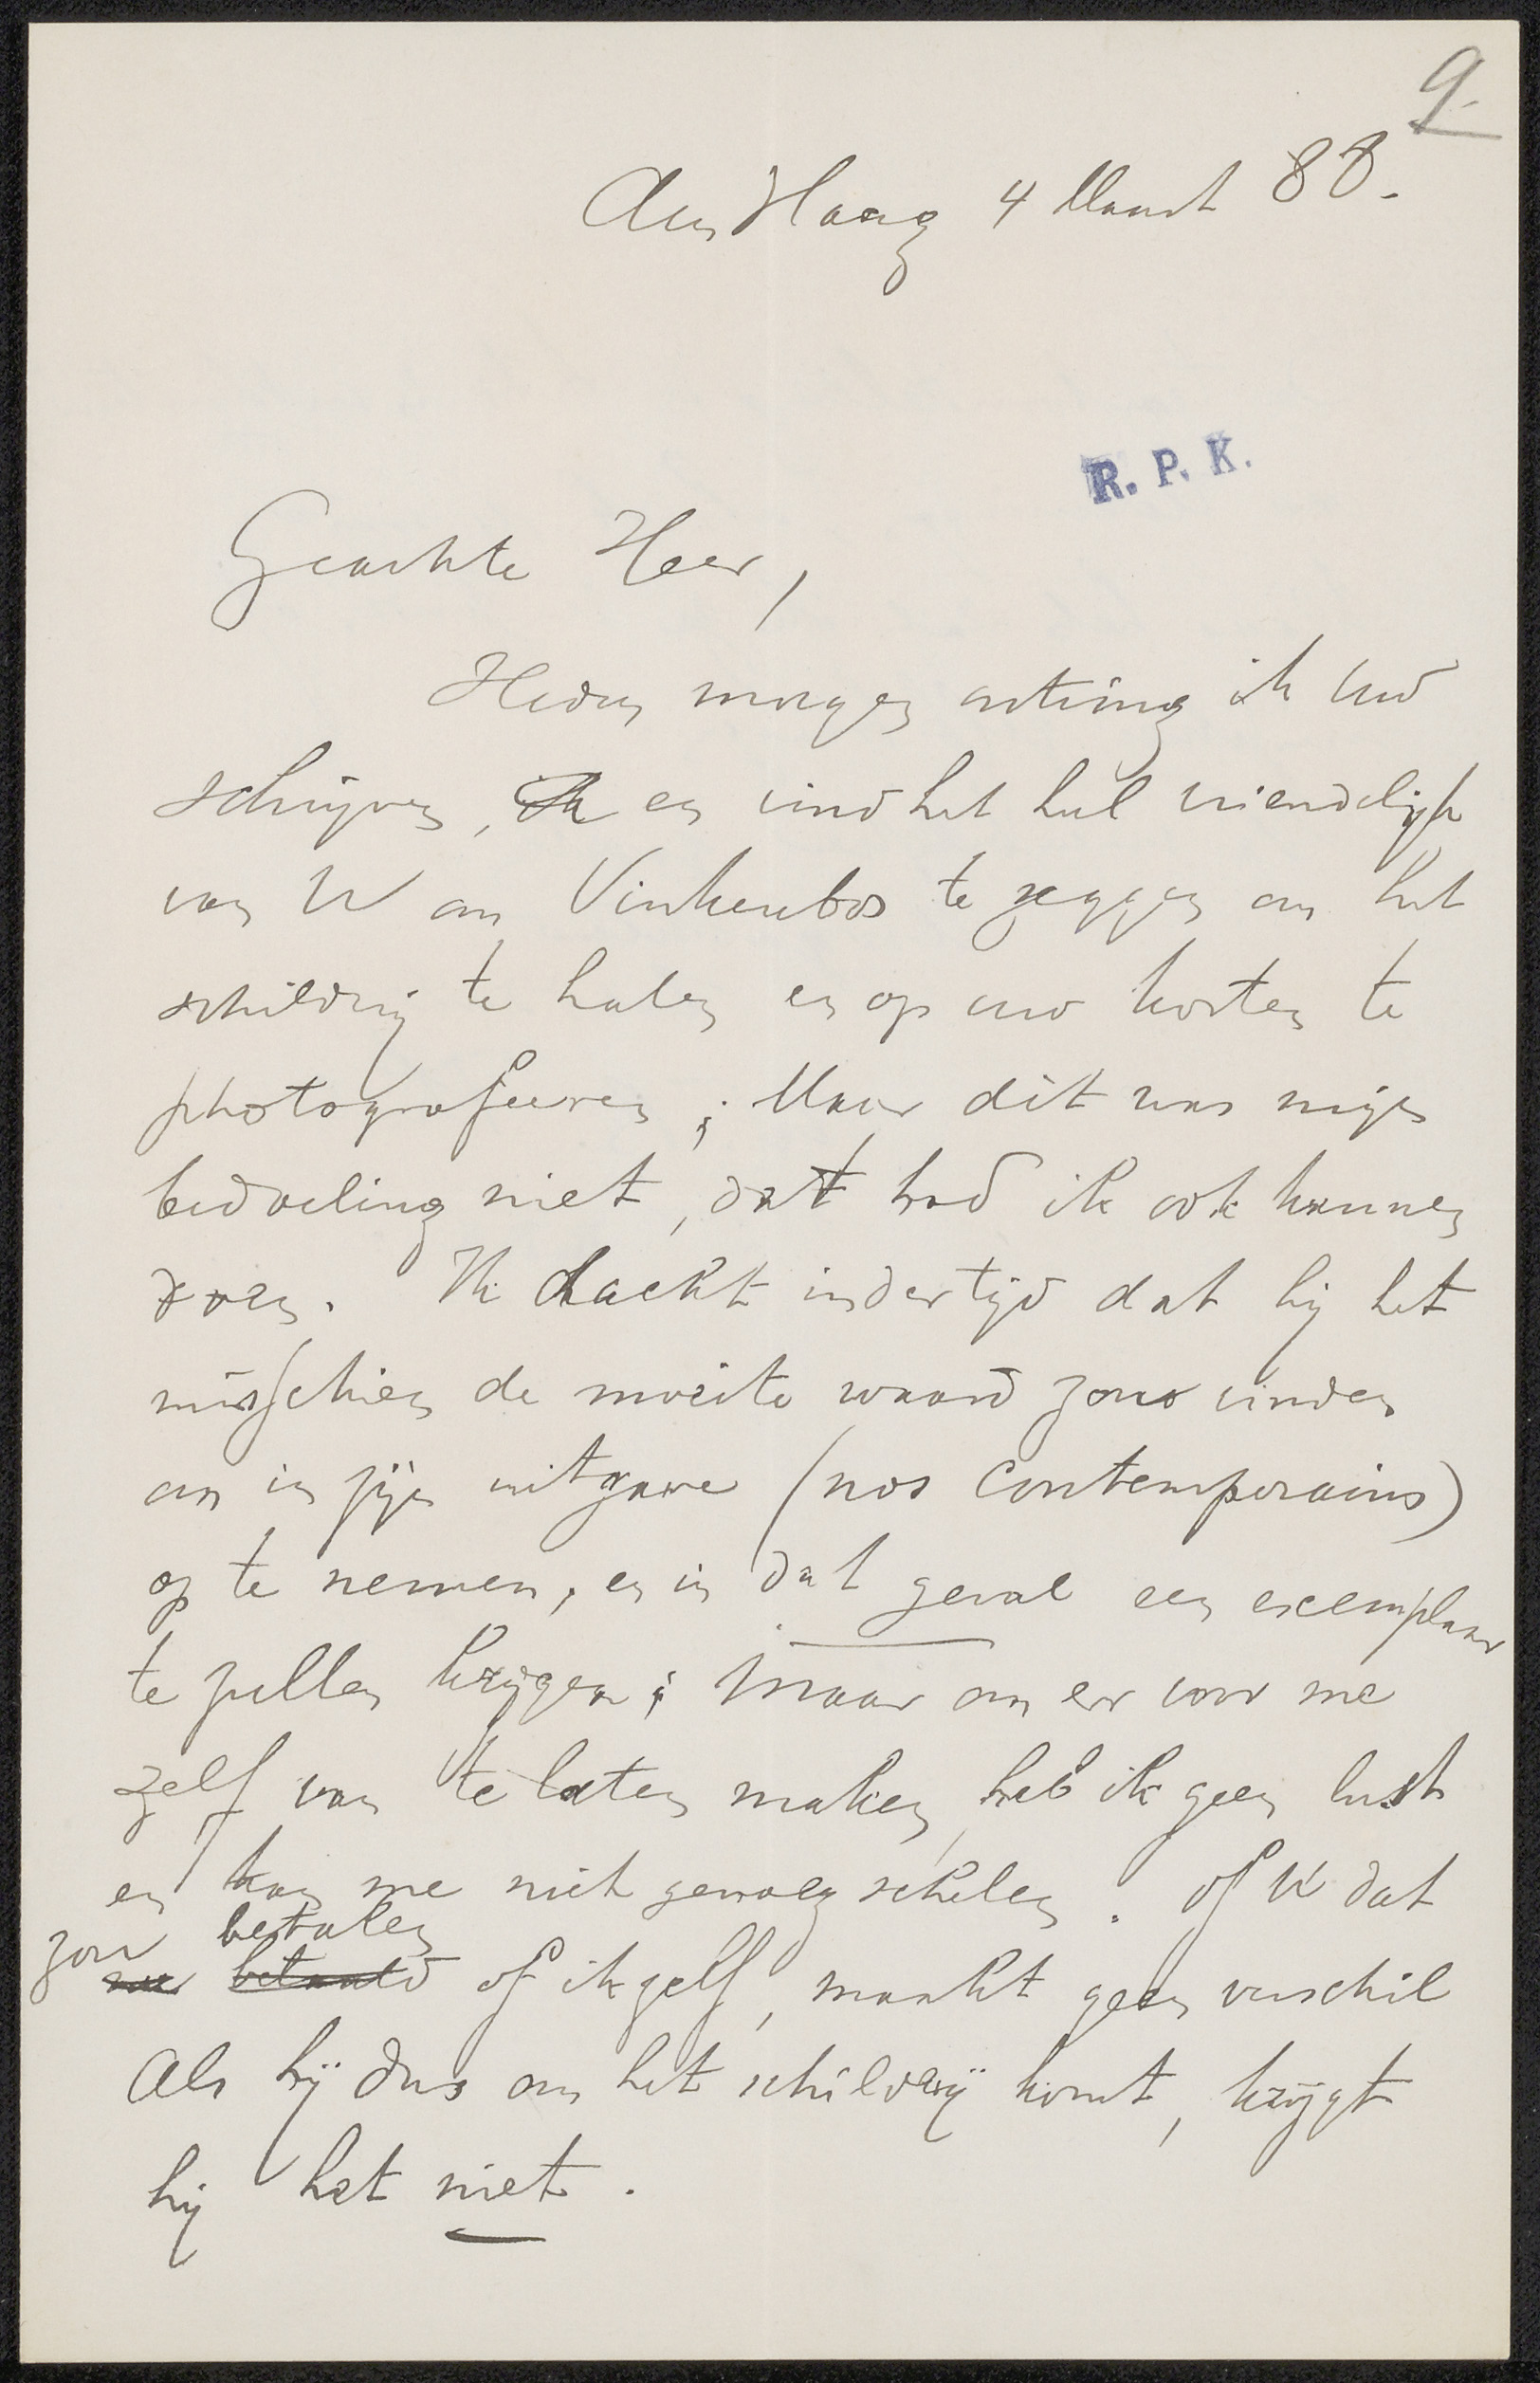 9.
Den Haag 4 Maart 88.
R. P. K.
Geachte Heer,
Heden morgen ontving ik Uw
schrijven, en vind het heel vriendelijk
van U om Vinkenbos te zeggen om het
schilderij te halen en op uw kosten te
photografeeren; Maar dit was mijn
bedoeling niet, dat had ik ook kunnen
doen. Ik dacht indertijd dat hij het
misschien de moeite waard zou vinden
om in zijn uitgave (nos Contemporains)
op te nemen, en in dat geval een exemplaar
te zullen krijgen; maar om er voor me
zelf van te laten maken, heb ik geen lust
en kan me niet genoeg schelen. Of U dat
zou betalen
betaald of ik zelf, maakt geen verschil
Als hij dus om het schilderij komt, krijgt
hij het niet.